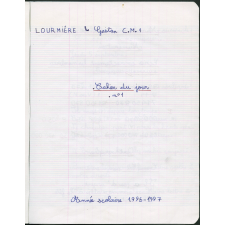 LOURMIÈRE Gaëtan C.M.1
Cahier du jour
n°1
Année scolaire 1996-1997